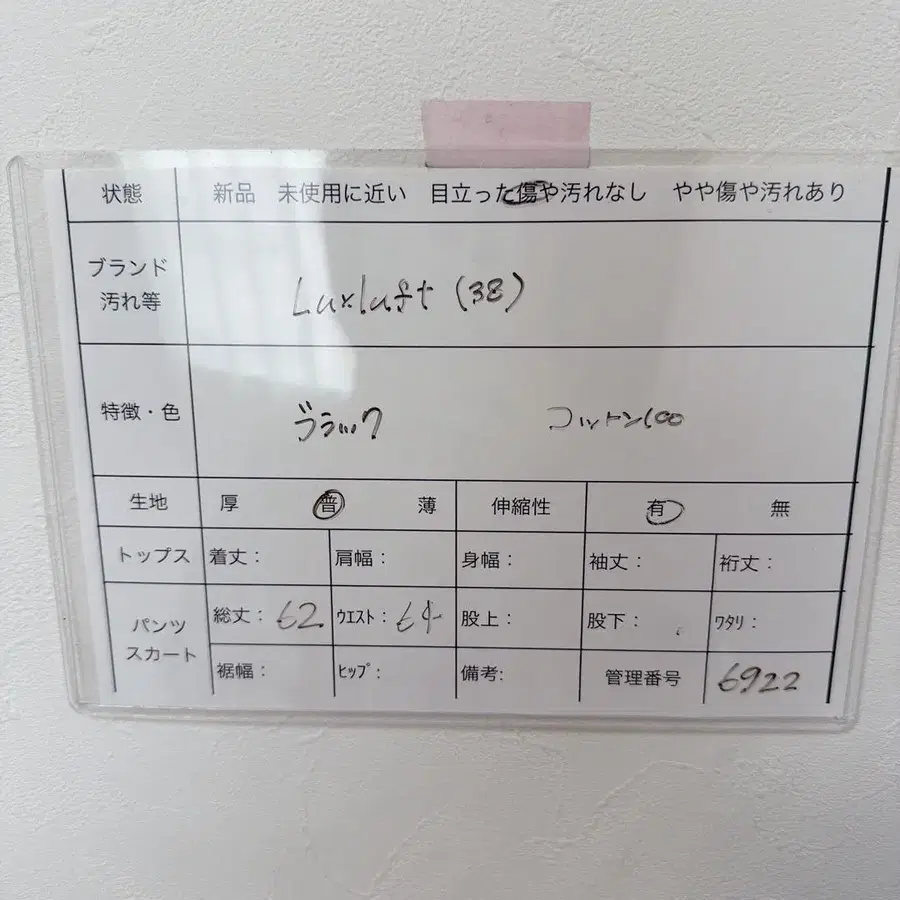 状態 新品 未使用に近い 目立った傷や汚れなし やや傷や汚れあり
ブランド
汚れ等
Luxluft (38)
特徴・色 ブラック コットン100
生地 厚 普 薄 伸縮性 有 無
トップス 着丈: 肩幅: 身幅: 袖丈: 裄丈:
パンツ
スカート
総丈: 62 ウエスト: 64 股上: 股下: ワタリ:
裾幅: ヒップ: 備考: 管理番号 6922